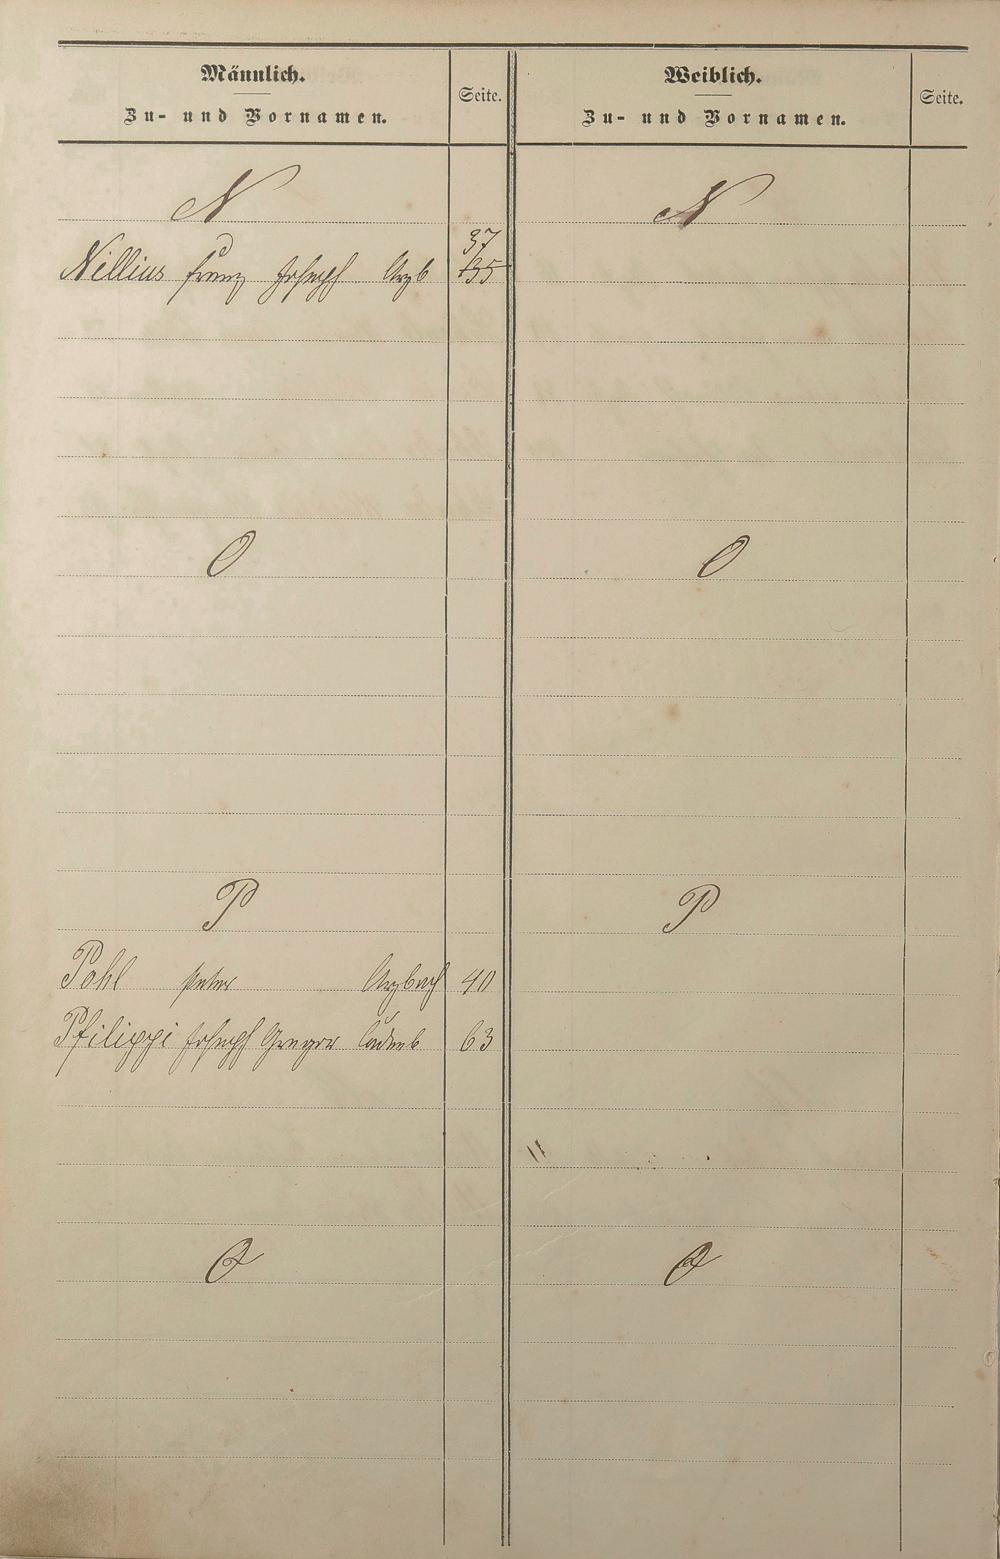 Männlich.
Zu- und Vornamen.
Seite.
Weiblich.
Zu- und Vornamen.
Seite.
N
N
37
Nillius Franz Joseph Arzb 135
O
O
P
P
Pohl Peter Arzbach 40
Pfilippi Joseph Gregor Cadenb 63
Q
Q